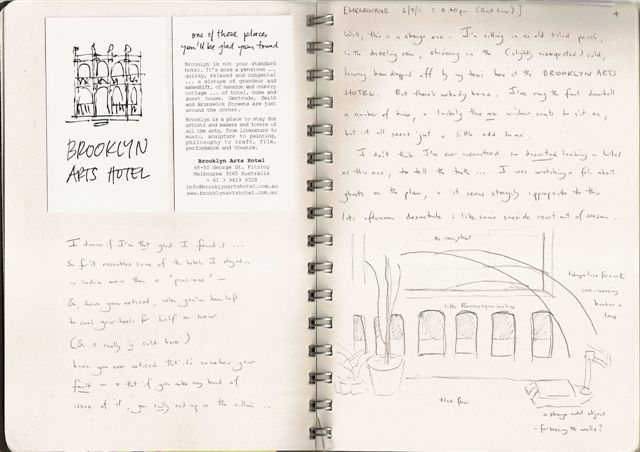 BROOKLYN
ARTS HOTEL
one of those places
you'll be glad you found
Brooklyn is not your standard
hotel. It's more a pensione ...
quirky, relaxed and congenial
... a mixture of grandeur and
makeshift, of mansion and country
cottage ... of hotel, home and
guest house. Gertrude, Smith
and Brunswick Streets are just
around the corner.
Brooklyn is a place to stay for
artists and makers and lovers of
all the arts, from literature to
music, sculpture to painting,
philosophy to craft, film,
performance and theatre.
Brooklyn Arts Hotel
48-50 George St. Fitzroy
Melbourne 3065 Australia
+ 61 3 9419 9328
info@brooklynartshotel.com.au
www.brooklynartshotel.com.au
I dunno if I'm that glad I found it ...
So far it resembles some of the hotels I stayed in
in India more than a 'pensione' —
&, have you noticed, when you've been left
to cool your heels for half an hour
(& it really is cold here)
have you ever noticed that it's somehow your
fault — & that if you make any kind of
issue of it, you really end up as the villain ...
[MELBOURNE 6/7/11 : 4.40 pm (local time)]
4
Well, this is a strange one. I'm sitting in an old tiled porch,
in the drizzling rain, shivering in the (slightly unexpected) cold,
having been dropped off by my taxi here at the BROOKLYN ARTS
HOTEL. But there's nobody home. I've rung the front doorbell
a number of times, & luckily there are wicker seats to sit on,
but it all seems just a little odd to me.
I don't think I've ever encountered so deserted looking a hotel
as this one, to tell the truth ... I was watching a film about
ghosts on the plane, & it seems strangely appropriate to this
late afternoon desuetude : like some seaside resort out of season.
the rainy street
little Romanesque arches
criss-crossing
tiled floor
a strange metal object
- for bracing the walls?